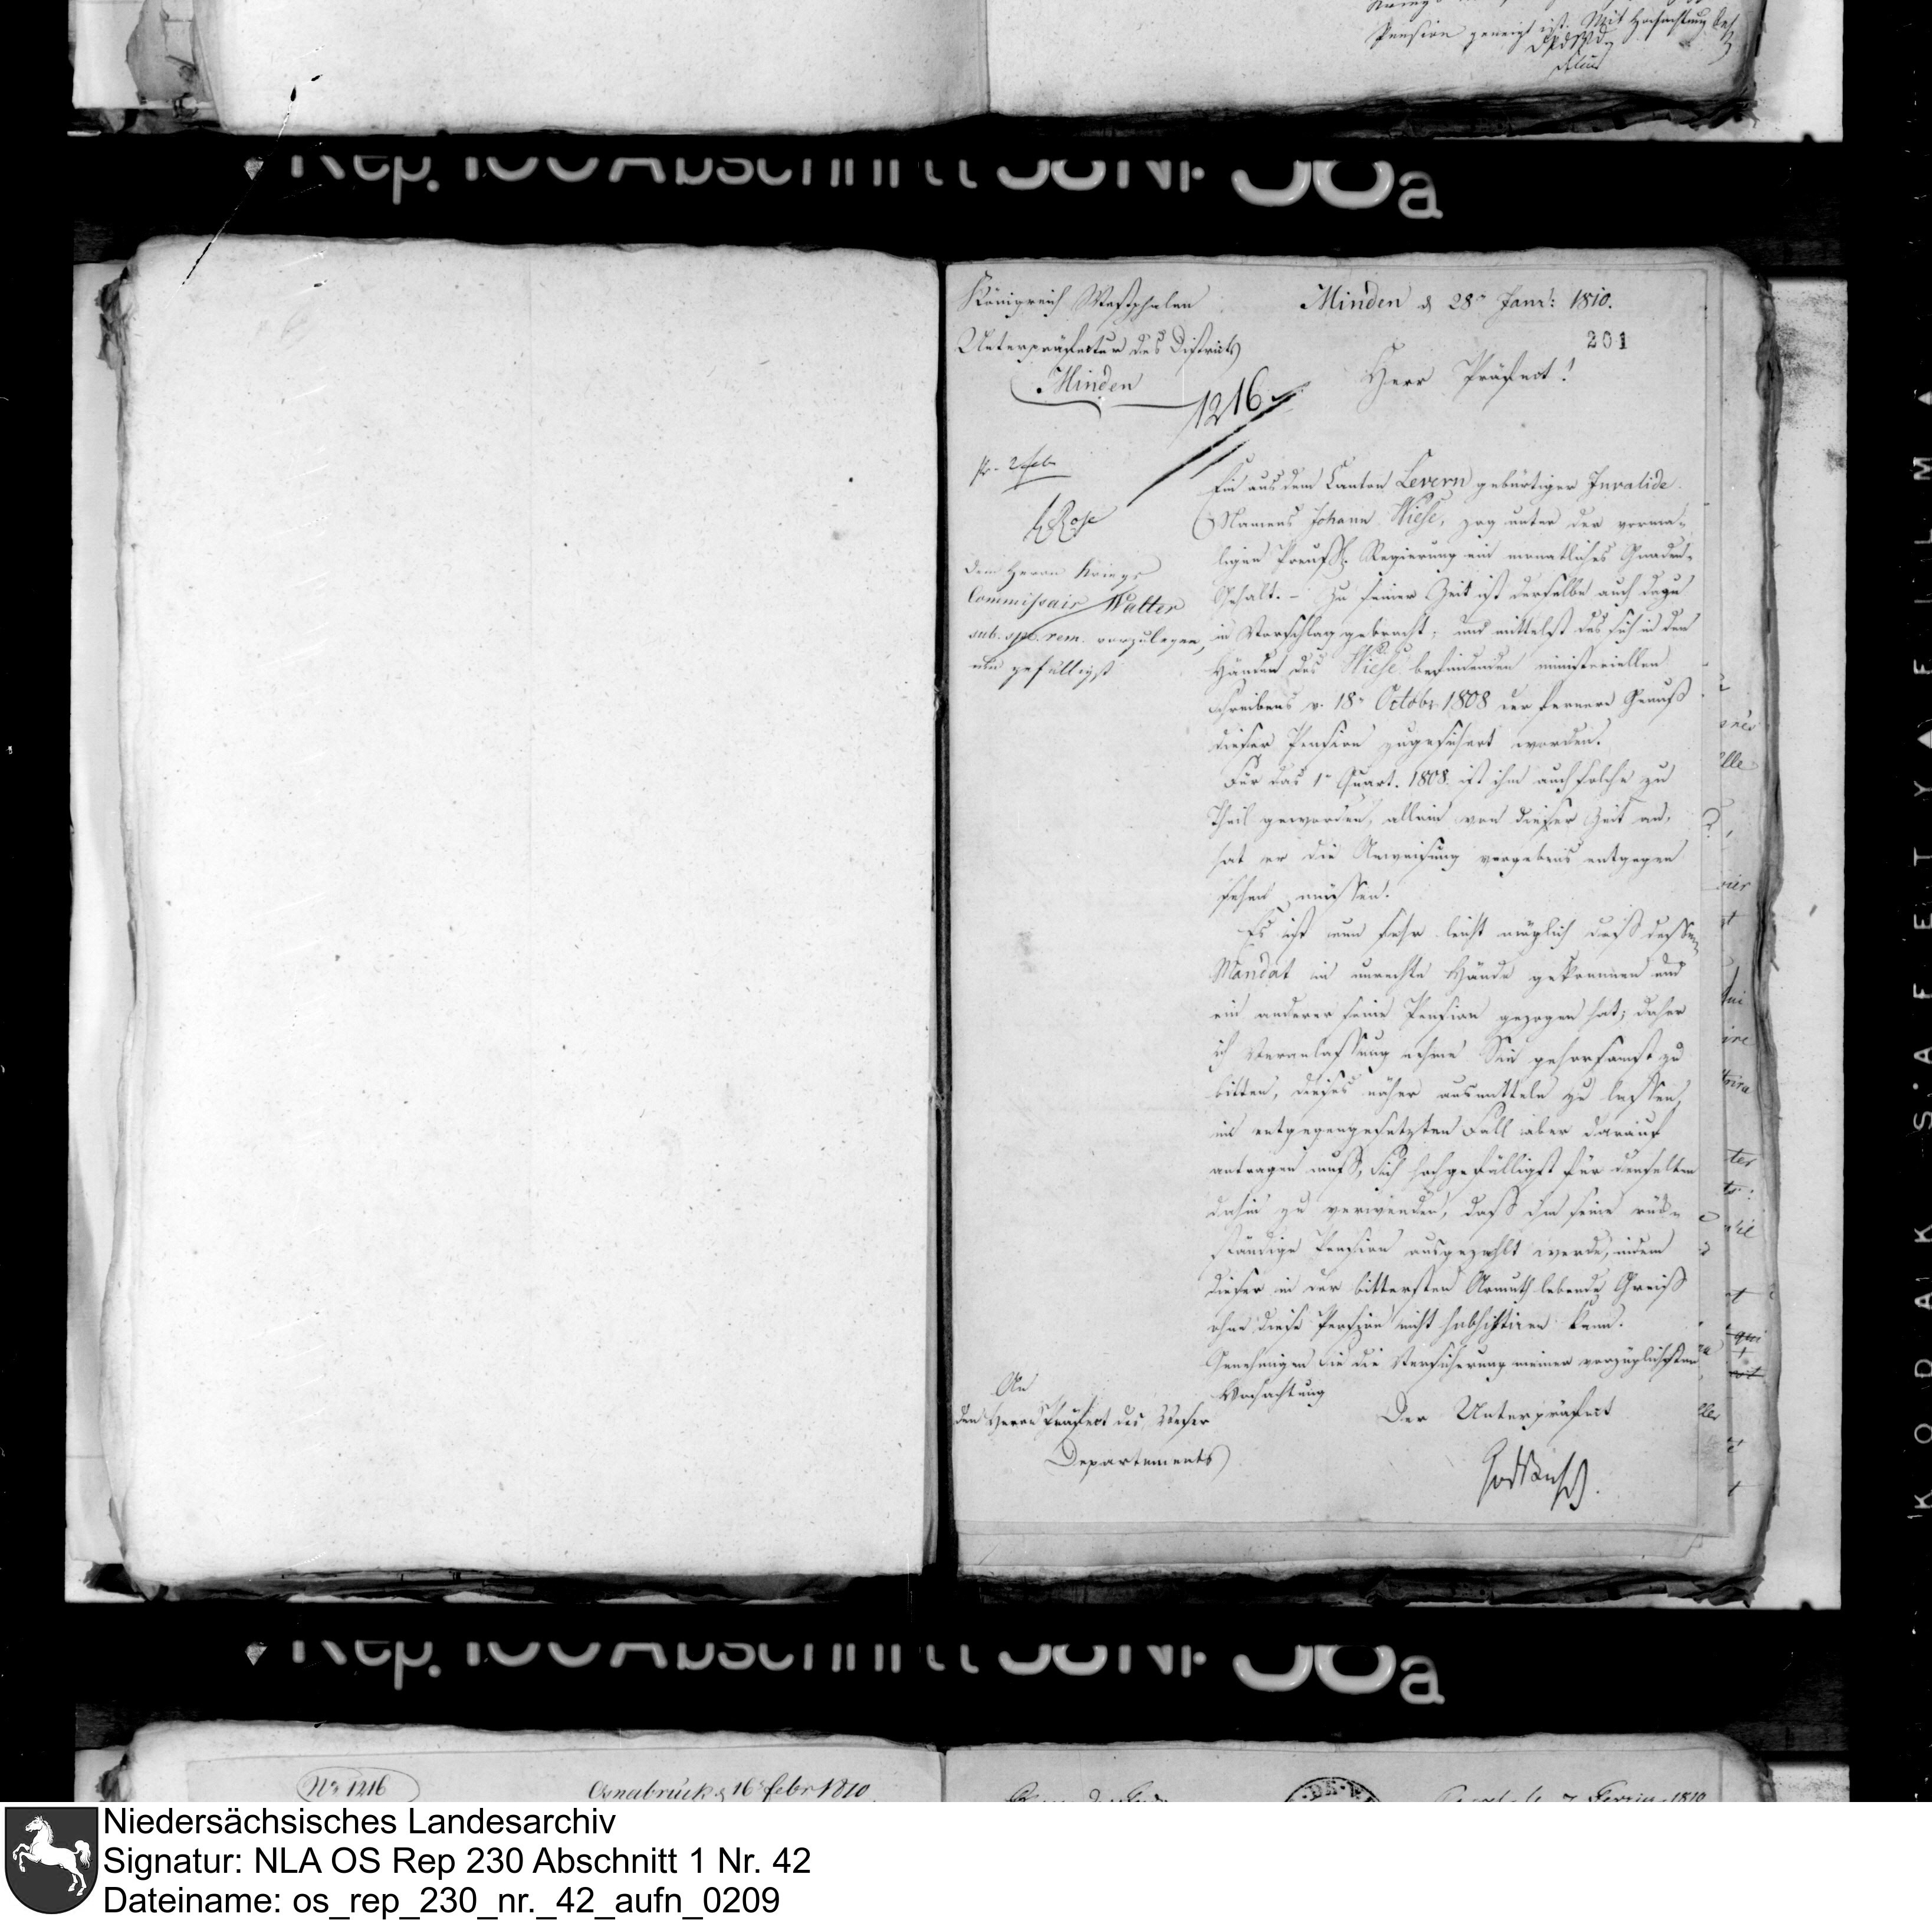 Pension geneigt ist. Mit Hochachtung
Rep. 100 Abschnitt 58 Nr 38a
Königreich Westphalen
Unterpräfectur des Districts
Minden
Minden d 28n Janr: 1810.
201
1216.
Herr Präfect!
pr. 2 feb
Dem Herrn Kriegs
Commissair Walter
sub. spe. rem. vorzulegen,
um gefälligst
Ein aus dem Canton Levern gebürtiger Invalide
Namens Johann Wiese, zog unter der vorma-
ligen Preuß. Regierung ein monatliches Gnaden-
Gehalt. – Zu seiner Zeit ist derselbe auch dazu
in Vorschlag gebracht, und mittelst des sich in den
Händen des Wiese befindenden ministeriellen
Schreibens v. 18n Octobr 1808 der fernere Genuß
dieser Pension zugesichert worden.
Für das 1n Quart. 1808. ist ihm auch solche zu
Theil geworden, allein von dieser Zeit an,
hat er die Anweisung vergebens entgegen
sehen müssen.
Es ist nun sehr leicht möglich daß dessen
Mandat in unrechte Hände gekommen und
ein anderer seine Pension gezogen hat; daher
ich Veranlassung nehme Sie gehorsamst zu
bitten, dieses näher ausmitteln zu lassen,
im entgegengesetzten Fall aber darauf
antragen muß, sich hochgefälligst für denselben
dahin zu verwenden, daß ihm seine rück-
ständige Pension ausgezahlt werde, indem
dieser in der bittersten Armuth lebende Greiß
ohne diese Pension nicht subsistiren kann.
Genehmigen Sie die Versicherung meiner vorzüglichsten
Hochachtung
An
den Herrn Präfect des Weser
Departements
Der Unterpräfect
Rep. 100 Abschnitt 58 Nr 38a
No 1216
Osnabrück d 16n febr 1810
Niedersächsisches Landesarchiv
Signatur: NLA OS Rep 230 Abschnitt 1 Nr. 42
Dateiname: os_rep_230_nr._42_aufn_0209